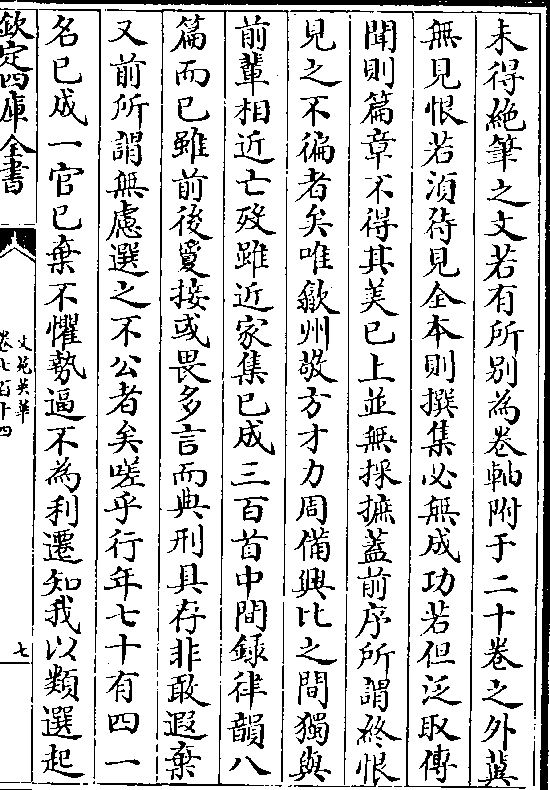 未得絶筆之文若有所别為卷軸附于二十卷之外冀
無見恨若湏待見全本則撰集必無成功若但泛取傳
聞則篇章不得其美已上並無採摭蓋前序所謂終恨
見之不徧者矣唯歙州敬方才力周備興比之間獨與
前輩相近亡殁雖近家集已成三百首中間録律韻八
篇而已雖前後爰接或畏多言而典刑具存非敢遐棄
又前所謂無慮選之不公者矣嗟乎行年七十有四一
名已成一官已棄不懼勢逼不為利遷知我以類選起
欽定四庫全書
文苑英華
卷七百十四
七